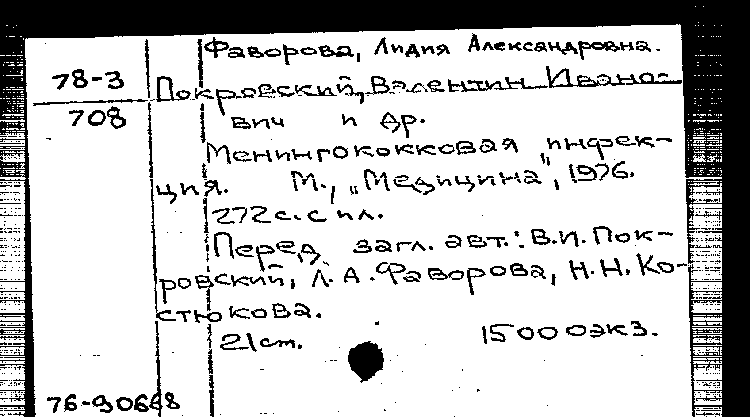 Фаворова, Лидия Александровна.
78-3 Покровский, Валентин Ивано-
708 вич и др.
Менингококковая инфек-
ция. М., „Медицина", 1976.
272 с. с ил.
Перед загл. авт.: В.И. Пок-
ровский, Л.А. Фаворова, Н.Н. Ко-
стюкова.
21 ст. 15000 экз.
76-90668